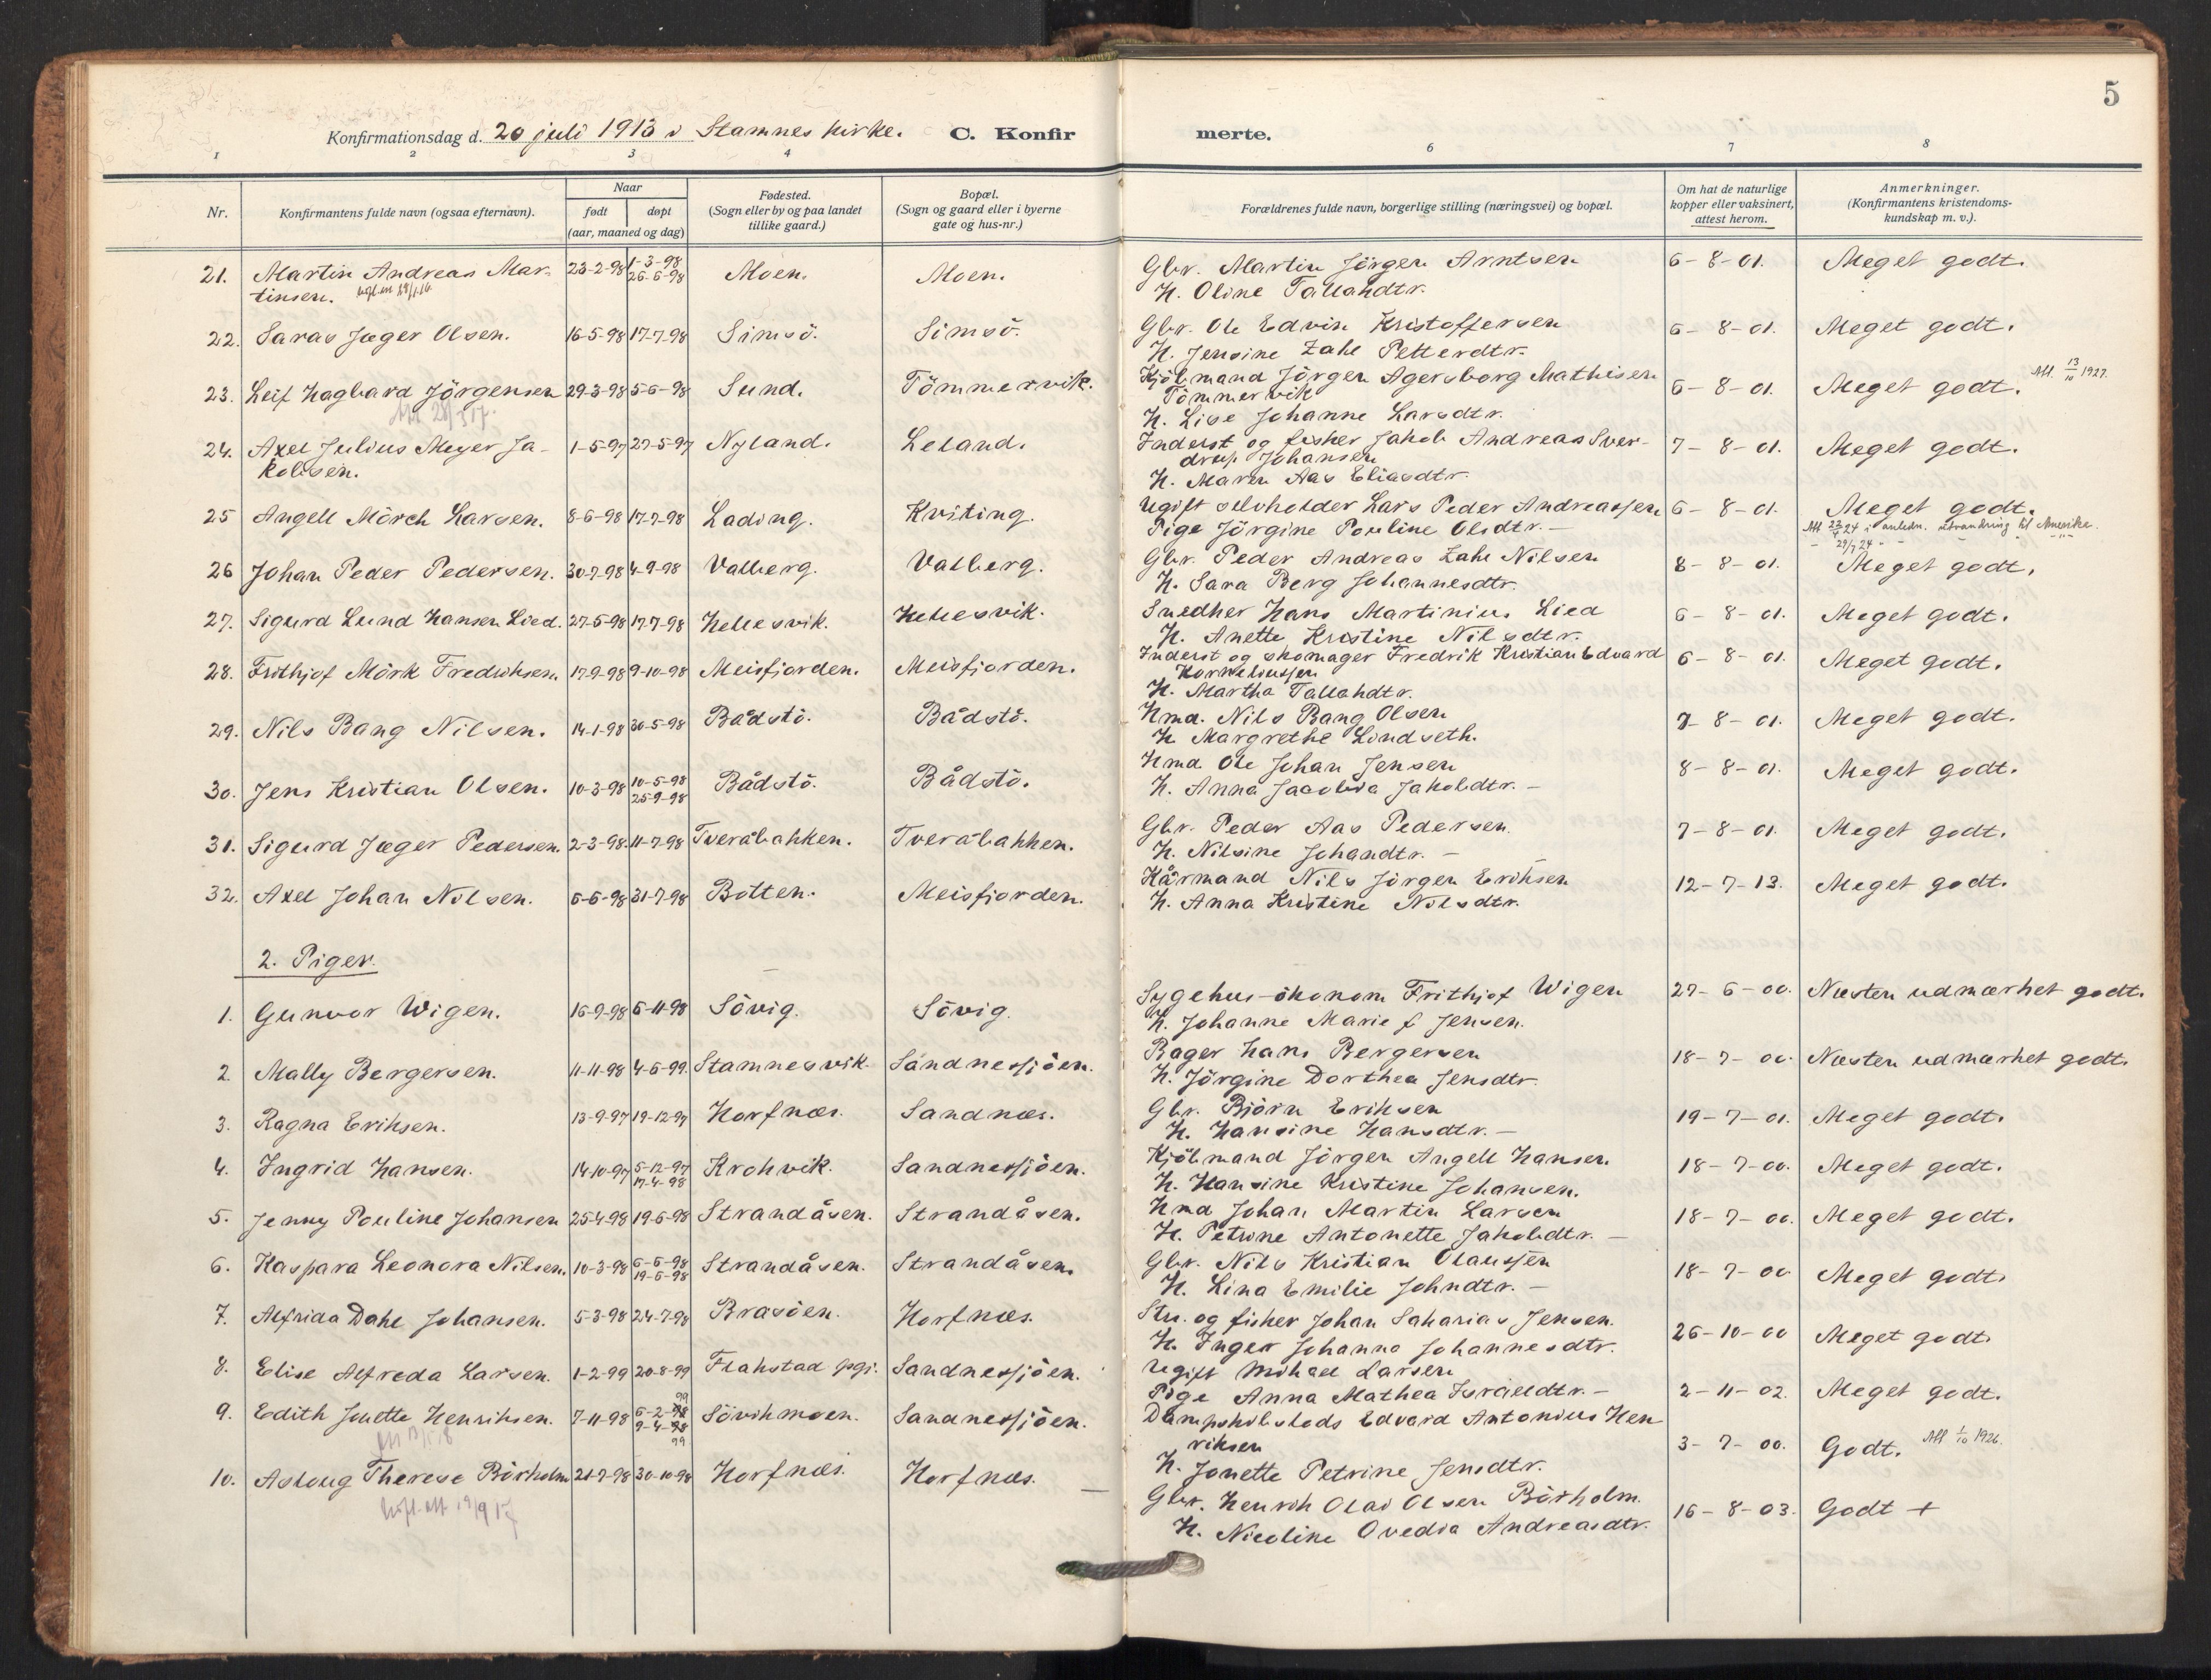 5
Konfirmationsdag d. 20 juli 1913 i Stamnes kirke. C. Konfirmerte.
1 2 3 4 6 7 8
Nr. Konfirmantens fulde navn (ogsaa efternavn). Naar født døpt (aar, maaned og dag) Fødested. (Sogn eller by og paa landet tillike gaard.) Bopæl. (Sogn og gaard eller i byerne gate og hus-nr.) Forældrenes fulde navn, borgerlige stilling (næringsvei) og bopæl. Om hat de naturlige kopper eller vaksinert, attest herom. Anmerkninger. (Konfirmantens kristendomskundskap m. v.).
21. Martin Andreas Mar- 23-2-98 1-3-98 Moen. Moen. Gbr. Martin Jörgen Arntsen 6-8-01. Meget godt.
tinsen. 26-6-98 H. Oline Tallakdtr.
22. Saras Jæger Olsen. 16-5-98 17-7-98 Simsö. Simsö. Gbr. Ole Edvin Kristoffersen 6-8-01. Meget godt.
H. Jensine Zahl Petterdtr.
23. Leif Hagbard Jörgensen 29-3-98 5-6-98 Sund. Tömmervik. Kjöbmand Jörgen Agersborg Mathisen 6-8-01. Meget godt. Att. 13/10 1927.
Tömmervik
H. Lise Johanne Larsdtr.
24. Axel Julius Meyer Ja- 1-5-97 27-5-97 Nyland. Leland. Inderst og fisker Jakob Andreas Sver- 7-8-01. Meget godt.
kobsen. drup Johansen
H. Maren Aas Eliasdtr.
25 Angell Mörch Larsen. 8-6-98 17-7-98 Lading. Kviting. Ugift selvholder Lars Peder Andreassen 6-8-01. Meget godt.
Pige Jörgine Pouline Olsdtr. — Att 23/4 24 i anledn. utvandring til Amerika.
29/7 24
26 Johan Peder Pedersen. 30-7-98 4-9-98 Valberg. Valberg. Gbr. Peder Andreas Zahl Nilsen 8-8-01. Meget godt.
H. Sara Berg Johannesdtr.
27. Sigurd Lund Hansen Lied. 27-5-98 17-7-98 Hellesvik. Hellesvik. Snedker Hans Martinius Lied 6-8-01. Meget godt.
H. Anette Kristine Nilsdtr.
28. Frithjof Mörk Fredriksen. 17-9-98 9-10-98 Meisfjorden. Meisfjorden. Inderst og skomager Fredrik Kristian Edvard 6-8-01. Meget godt.
Korneliussen
H. Martha Tallakdtr.
29. Nils Bang Nilsen. 14-1-98 30-5-98 Bådstö. Bådstö. Hmd. Nils Bang Olsen 7-8-01. Meget godt.
H. Margrethe Lindseth.
30. Jens Kristian Olsen. 10-3-98 10-5-98 Bådstö. Bådstö. Hmd Ole Johan Jensen 8-8-01. Meget godt.
25-9-98 H. Anna Jacobia Jakobdtr. —
31. Sigurd Jæger Pedersen. 2-3-98. 11-7-98 Tveråbakken. Tveråbakken. Gbr. Peder Aas Pedersen. 7-8-01. Meget godt.
H. Nilsine Johandtr. —
32. Axel Johan Nilsen. 6-6-98 31-7-98 Botten. Meisfjorden. Kårmand Nils Jörgen Eriksen 12-7-13. Meget godt.
H. Anna Kristine Nilsdtr.
2. Piger.
1. Gunvor Wigen. 16-9-98 6-11-98 Sövig. Sövig. Sygehus-ökonom Frithjof Wigen 27-6-00. Næsten udmærket godt.
H. Johanne Marie f Jensen.
2. Mally Bergersen. 11-11-98 4-6-99. Stamnesvik. Sandnessjöen. Bager Hans Bergersen 18-7-00. Næsten udmærket godt.
H. Jörgine Dorthea Jensdtr.
3. Ragna Eriksen. 13-9-97 19-12-97 Horfnæs. Sandnæs. Gbr. Björn Eriksen 19-7-01. Meget godt.
H. Hansine Hansdtr. —
4. Ingrid Hansen. 14-10-97 5-12-97 Krokvik. Sandnessjöen. Kjöbmand Jörgen Angell Hansen 18-7-00. Meget godt.
17-4-98 H. Hansine Kristine Johansen.
5. Jenny Pouline Johansen 25-4-98 19-6-98 Strandåsen. Strandåsen. Hmd Johan Martin Larsen 18-7-00. Meget godt.
H. Petrine Antonette Jakobdtr. —
6. Kaspara Leonora Nilsen. 10-3-98 6-6-98 Strandåsen. Strandåsen. Gbr. Nils Kristian Olaussen 18-7-00 Meget godt.
19-6-98 H. Lina Emilie Johndtr. —
7. Alfrida Dahl Johansen. 5-3-98 24-7-98 Brasöen. Horfnæs. Str. og fisker Johan Saharias Jensen. 26-10-00 Meget godt.
H. Inger Johanna Johannesdtr.
8. Elise Alfreda Larsen. 1-2-99 20-8-99 Flakstad pgj. Sandnessjöen. Ugift Mikael Larsen 2-11-02. Meget godt.
Pige Anna Mathea Israeldtr. —
9. Edith Jonette Henriksen. 7-11-98 6-2-98 99 Sövikmoen. Sandnessjöen. Dampskibslods Edvard Antonius Hen 3-7-00. Godt. Att 1/10 1926.
9-4-98 99 riksen
H. Jonette Petrine Jensdtr.
10. Aslaug Therese Börholm 21-7-98 30-10-98 Horfnæs. Horfnæs. Gbr. Henrik Olai Olsen Börholm. 16-8-03. Godt +
H. Nicoline Ovedia Andreasdtr.